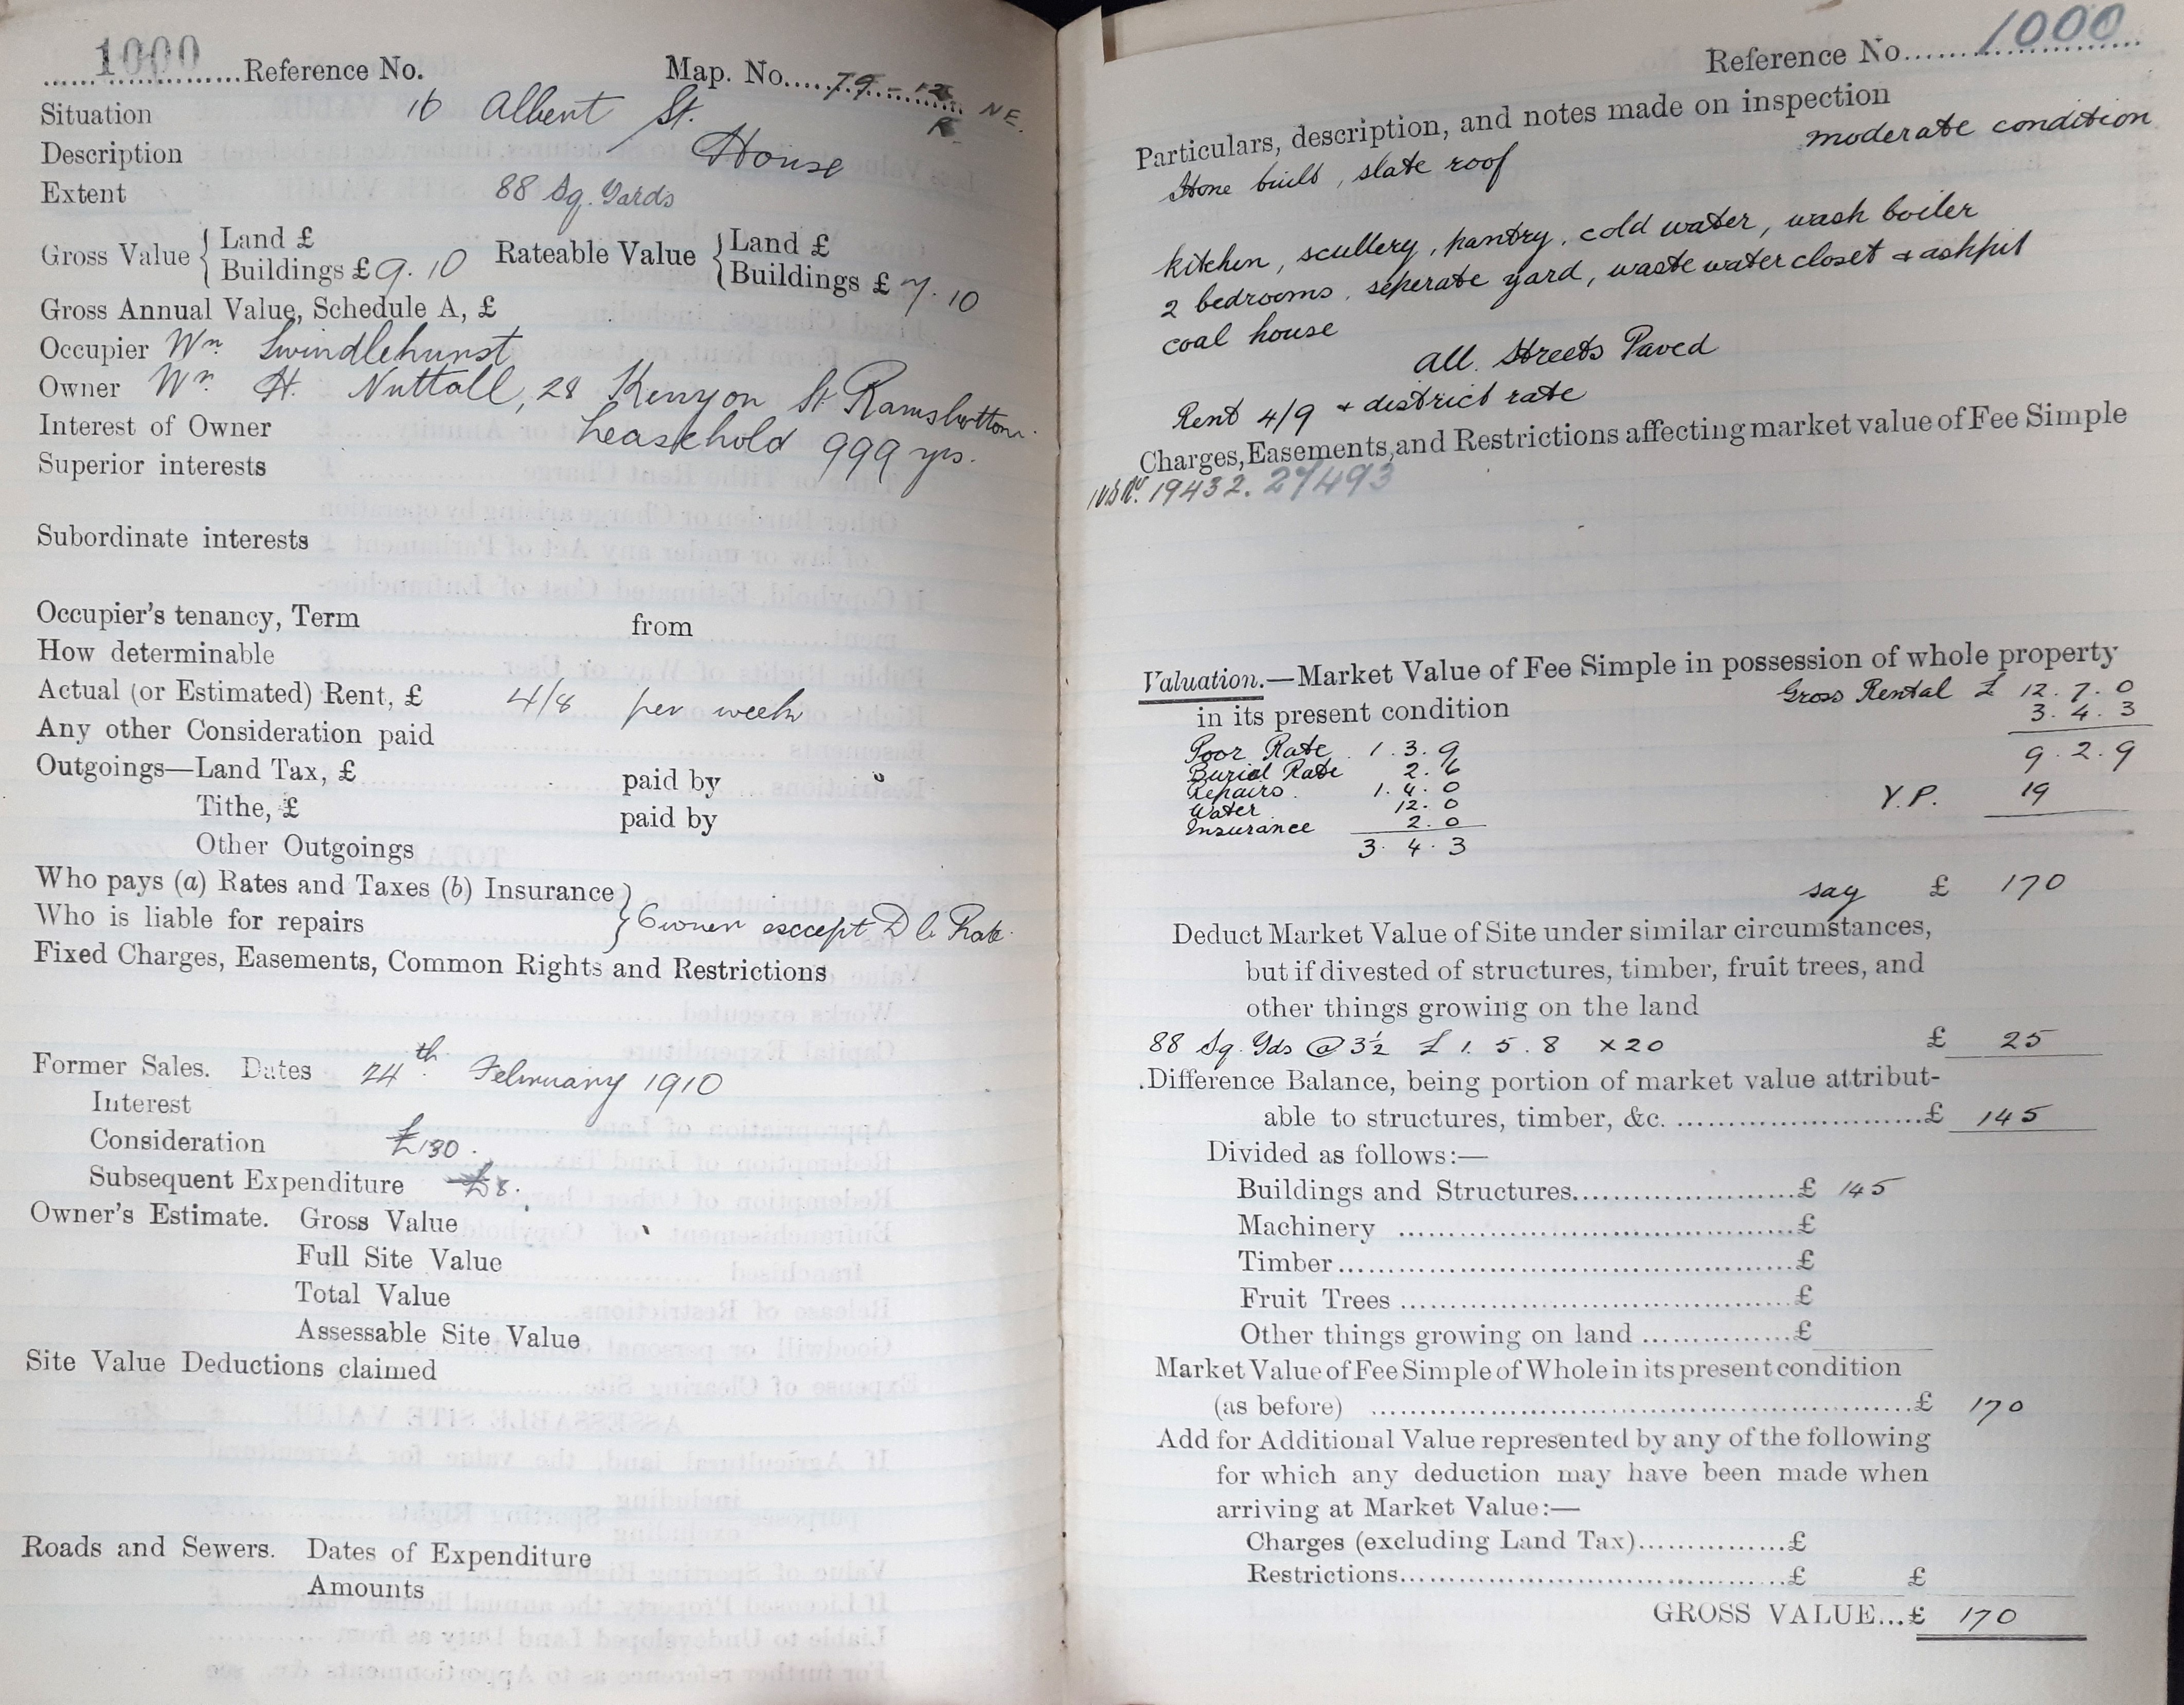 1000 Reference No. Map. No. 79 - 12 NE.
R
Situation 16 Albert St.
Description House
Extent 88 Sq. Yards
Gross Value { Land £ Rateable Value { Land £
Buildings £ 9. 10 Buildings £ 7. 10
Gross Annual Value, Schedule A, £
Occupier Wm Swindlehurst
Owner Wm H. Nuttall, 28 Kenyon St Ramsbottom.
Interest of Owner Leasehold 999 yrs.
Superior interests
Subordinate interests
Occupier's tenancy, Term from
How determinable
Actual (or Estimated) Rent, £ 4/8 per week
Any other Consideration paid
Outgoings—Land Tax, £ paid by
Tithe, £ paid by
Other Outgoings
Who pays (a) Rates and Taxes (b) Insurance }
Who is liable for repairs } Owner except D C Rate.
Fixed Charges, Easements, Common Rights and Restrictions
Former Sales. Dates 24th February 1910
Interest
Consideration £130.
Subsequent Expenditure £8.
Owner's Estimate. Gross Value
Full Site Value
Total Value
Assessable Site Value
Site Value Deductions claimed
Roads and Sewers. Dates of Expenditure
Amounts
Reference No. 1000
Particulars, description, and notes made on inspection
moderate condition
Stone built, slate roof
kitchen, scullery, pantry, cold water, wash boiler
2 bedrooms, seperate yard, waste water closet + ashpit
coal house
All. Streets Paved
Rent 4/9 + district rate
Charges, Easements, and Restrictions affecting market value of Fee Simple
19432. 27493
Valuation.—Market Value of Fee Simple in possession of whole property
in its present condition Gross Rental £ 12. 7. 0
3. 4. 3
Poor Rate 1. 3. 9 9. 2. 9
Burial Rate 2. 6
Repairs. 1. 4. 0 Y.P. 19
Water 12. 0
Insurance 2. 0
3. 4. 3
say £ 170
Deduct Market Value of Site under similar circumstances,
but if divested of structures, timber, fruit trees, and
other things growing on the land
88 Sq. Yds @ 3½ £ 1. 5. 8 x 20 £ 25
Difference Balance, being portion of market value attribut-
able to structures, timber, &c. £ 145
Divided as follows:—
Buildings and Structures £ 145
Machinery £
Timber £
Fruit Trees £
Other things growing on land £
Market Value of Fee Simple of Whole in its present condition
(as before) £ 170
Add for Additional Value represented by any of the following
for which any deduction may have been made when
arriving at Market Value:—
Charges (excluding Land Tax) £
Restrictions £ £
GROSS VALUE...£ 170